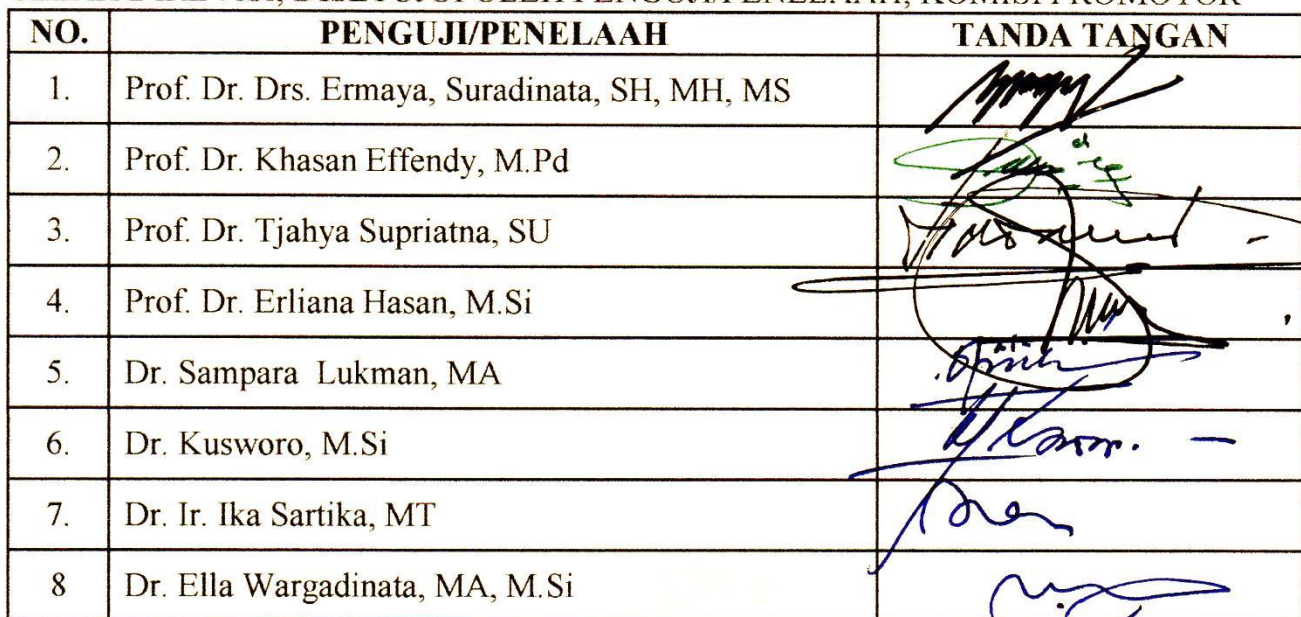 PENGUJI/PENELAAH, KOMISI PROMOTOR
NO. PENGUJI/PENELAAH TANDA TANGAN
1. Prof. Dr. Drs. Ermaya, Suradinata, SH, MH, MS
2. Prof. Dr. Khasan Effendy, M.Pd
3. Prof. Dr. Tjahya Supriatna, SU
4. Prof. Dr. Erliana Hasan, M.Si
5. Dr. Sampara Lukman, MA
6. Dr. Kusworo, M.Si
7. Dr. Ir. Ika Sartika, MT
8 Dr. Ella Wargadinata, MA, M.Si